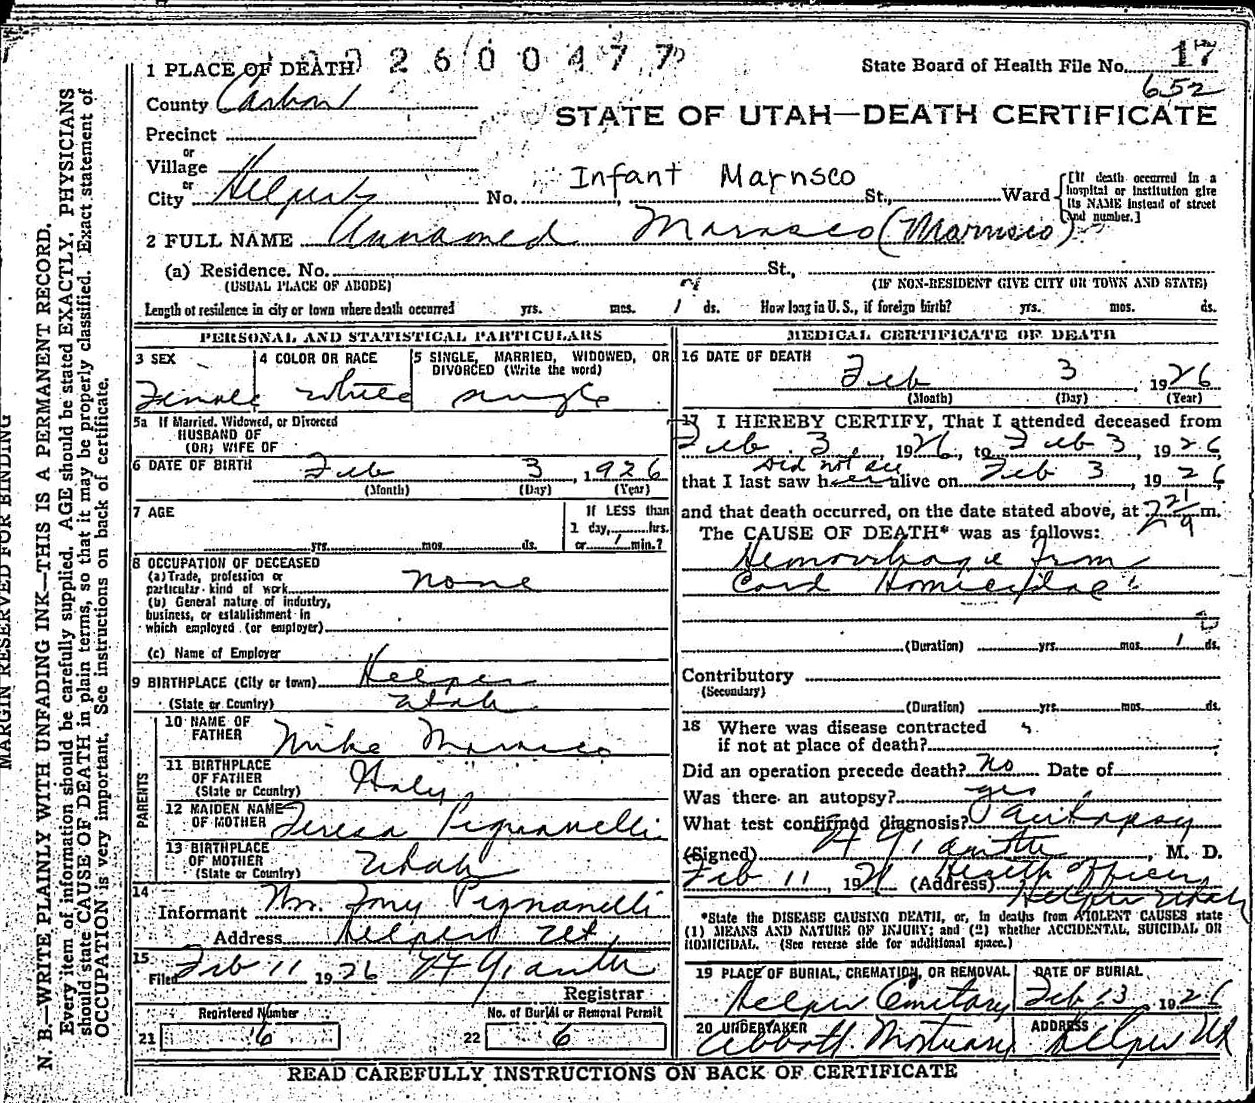 2600477
State Board of Health File No. 17
652
1 PLACE OF DEATH
County Carbon
STATE OF UTAH—DEATH CERTIFICATE
Precinct
or
Village
or
City Helper No. Infant Marnsco St., Ward
[If death occurred in a hospital or institution give its NAME instead of street and number.]
2 FULL NAME Unnamed Marasco (Marnsco)
(a) Residence. No. St.,
(USUAL PLACE OF ABODE) (IF NON-RESIDENT GIVE CITY OR TOWN AND STATE)
Length of residence in city or town where death occurred yrs. mos. 1 ds. How long in U. S., if foreign birth? yrs. mos. ds.
PERSONAL AND STATISTICAL PARTICULARS
3 SEX 4 COLOR OR RACE 5 SINGLE, MARRIED, WIDOWED, OR DIVORCED (Write the word)
Female White single
5a If Married, Widowed, or Divorced
HUSBAND OF
(OR) WIFE OF
6 DATE OF BIRTH Feb 3, 1926
(Month) (Day) (Year)
7 AGE If LESS than
1 day, hrs.
yrs. mos. ds. or 1 min.?
8 OCCUPATION OF DECEASED
(a) Trade, profession or
particular kind of work none
(b) General nature of industry,
business, or establishment in
which employed (or employer)
(c) Name of Employer
9 BIRTHPLACE (City or town) Helper
(State or Country) Utah
PARENTS
10 NAME OF FATHER Mike Marasco
11 BIRTHPLACE OF FATHER (State or Country) Italy
12 MAIDEN NAME OF MOTHER Teresa Pignanelli
13 BIRTHPLACE OF MOTHER (State or Country) Utah
14
Informant Mr. Tony Pignanelli
Address Helper Ut.
15
Filed Feb 11 1926
Registrar
Registered Number No. of Burial or Removal Permit
21 6 22 6
MEDICAL CERTIFICATE OF DEATH
16 DATE OF DEATH
Feb 3, 1926
(Month) (Day) (Year)
17 I HEREBY CERTIFY, That I attended deceased from
Feb 3, 1926, to Feb 3, 1926
Did not see
that I last saw her alive on Feb 3, 1926
and that death occurred, on the date stated above, at m.
The CAUSE OF DEATH* was as follows:
Hemorrhage from
Cord Homicidae
(Duration) yrs. mos. 1 ds.
Contributory
(Secondary)
(Duration) yrs. mos. ds.
18 Where was disease contracted
if not at place of death?
Did an operation precede death? No Date of
Was there an autopsy? yes
What test confirmed diagnosis? Autopsy
(Signed), M. D.
Feb 11, 192 (Address) Health Officer
Helper Utah
*State the DISEASE CAUSING DEATH, or, in deaths from VIOLENT CAUSES state
(1) MEANS AND NATURE OF INJURY; and (2) whether ACCIDENTAL, SUICIDAL OR
HOMICIDAL. (See reverse side for additional space.)
19 PLACE OF BURIAL, CREMATION, OR REMOVAL DATE OF BURIAL
Helper Cemetary Feb 13 1926
20 UNDERTAKER ADDRESS
Abbott Mortuary Helper Ut
READ CAREFULLY INSTRUCTIONS ON BACK OF CERTIFICATE
MARGIN RESERVED FOR BINDING
N. B.—WRITE PLAINLY WITH UNFADING INK—THIS IS A PERMANENT RECORD.
Every item of information should be carefully supplied. AGE should be stated EXACTLY. PHYSICIANS
should state CAUSE OF DEATH in plain terms, so that it may be properly classified. Exact statement of
OCCUPATION is very important. See instructions on back of certificate.